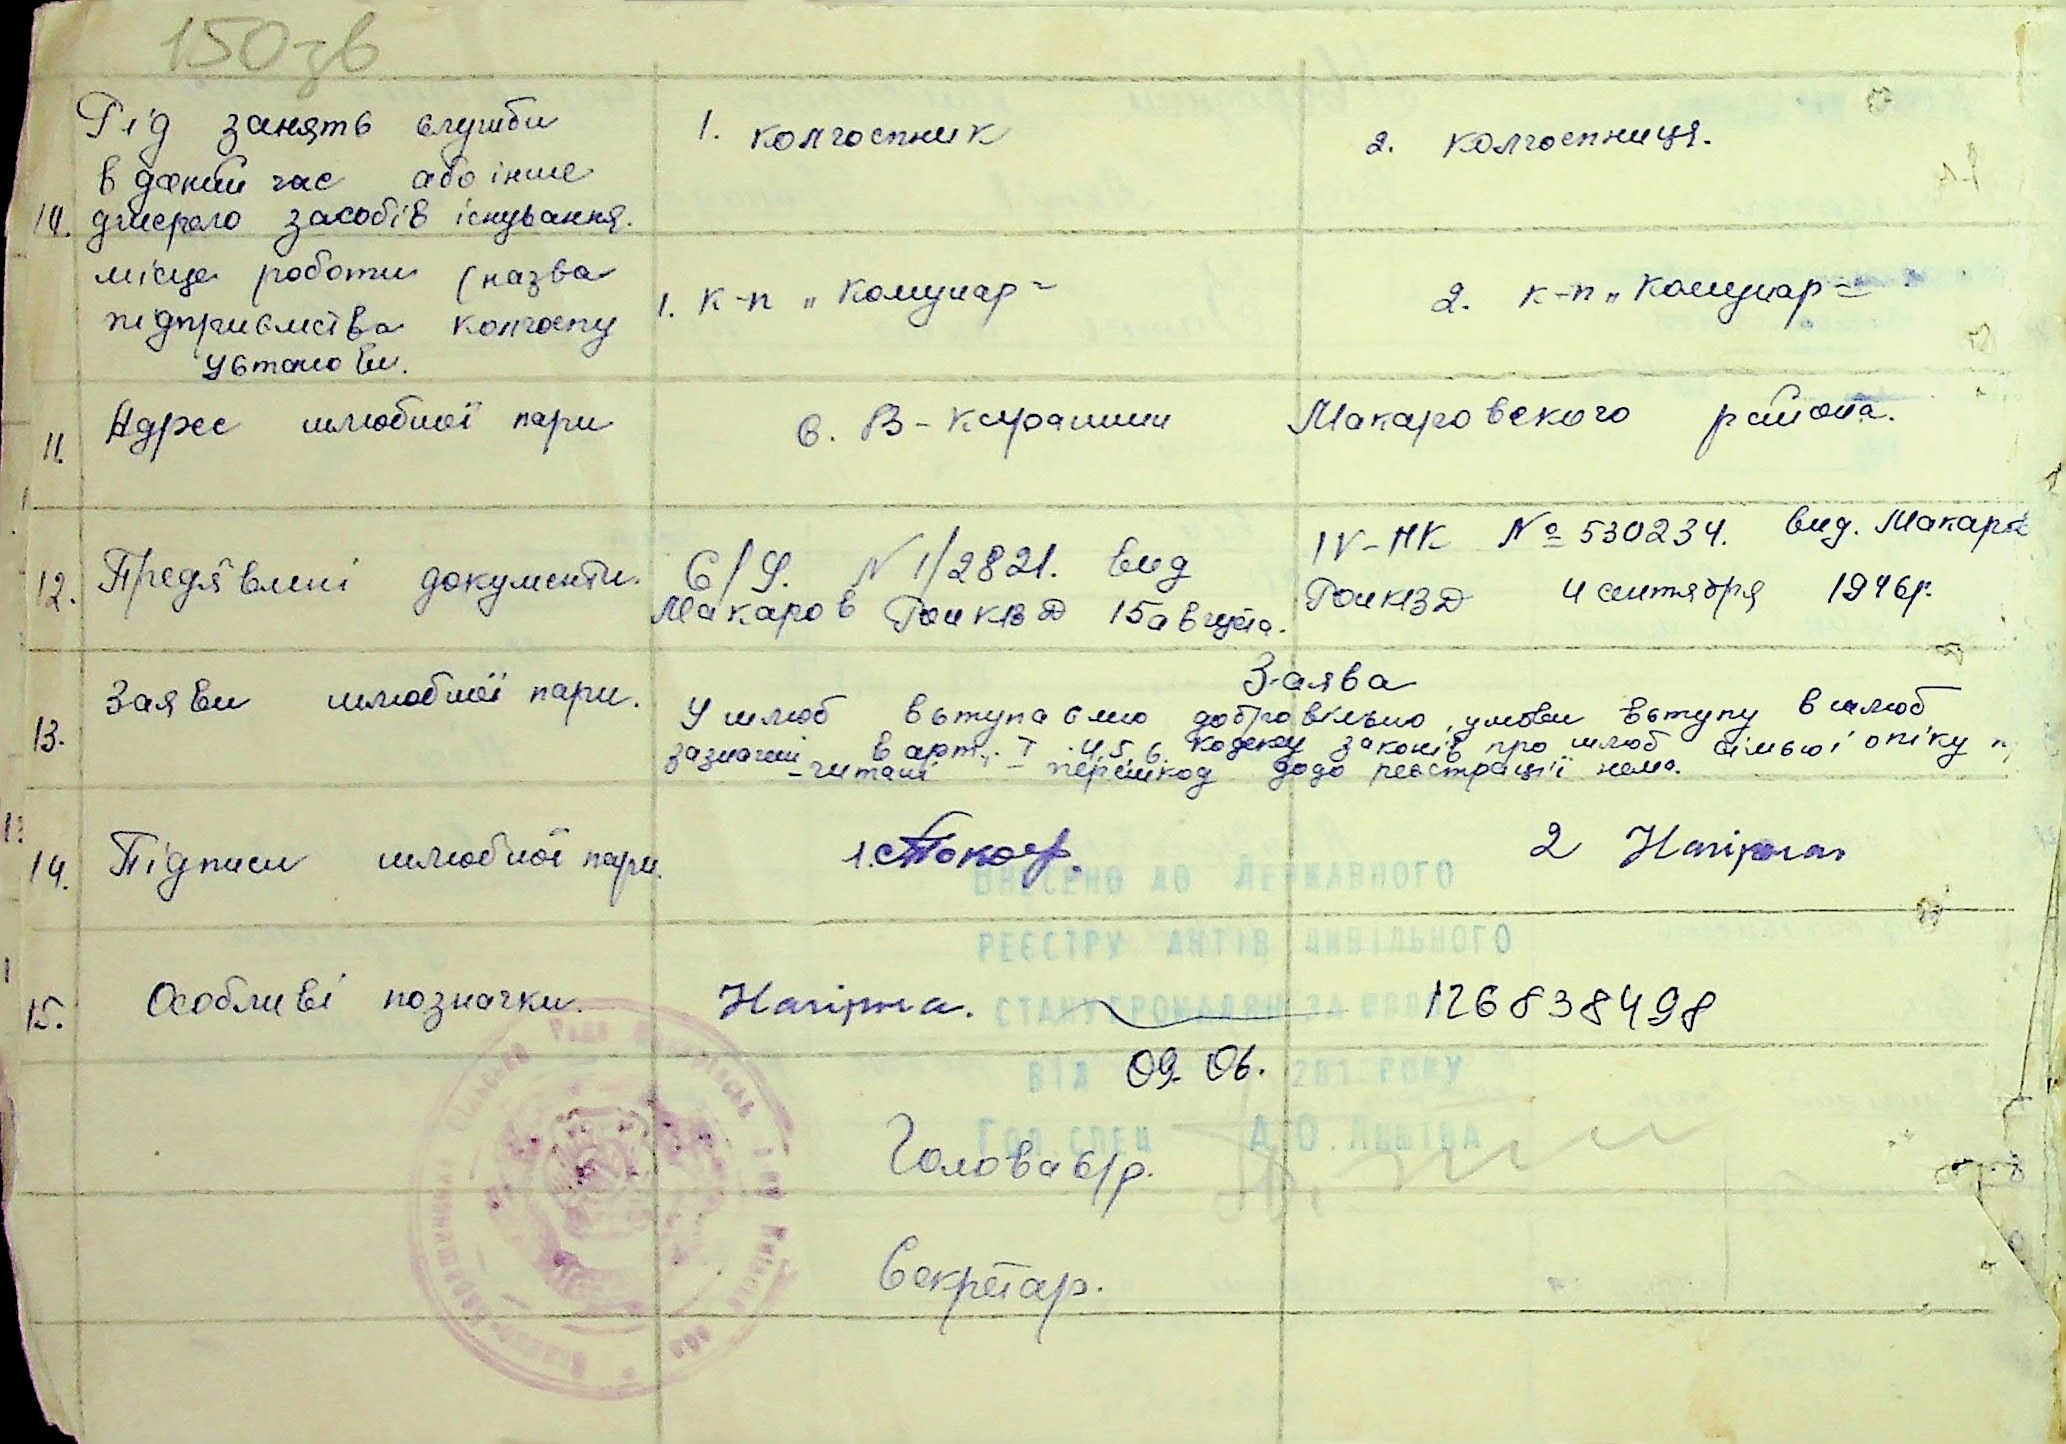 150зв
Рід занять служби
в даний час або інше
10. джерело засобів існування.
1. колгоспник
2. колгоспниця.
місце роботи (назва
підприємства колгоспу
установи.
1. к-п „Комунар"
2. к-п „Комунар"
11. Адрес шлюбної пари
с. В-Карашин Макаровского района.
12. Предявлені документи.
С/У. N 1/2821. вид
Макаров РоНКВД 15 августа.
IV-НК № 530234. вид. Макаров
РоНКВД 4 сентября 1946р.
13. Заяви шлюбної пари.
Заява
У шлюб вступаємо добровільно, умови вступу в шлюб
зазначені в арт. I 4.5.6. кодексу законів про шлюб сімью і опіку
читані перешкод додо реєстрації нема.
14. Підписи шлюбної пари.
1.
2
ВНЕСЕНО ДО ДЕРЖАВНОГО
РЕЄСТРУ АКТІВ ЦИВІЛЬНОГО
15. Особливі позначки.
126838498
СТАНУ ГРОМАДЯН ЗА
ВІД 09. 06. 201 РОКУ
Гол спец
Голова с/р.
Секретар.